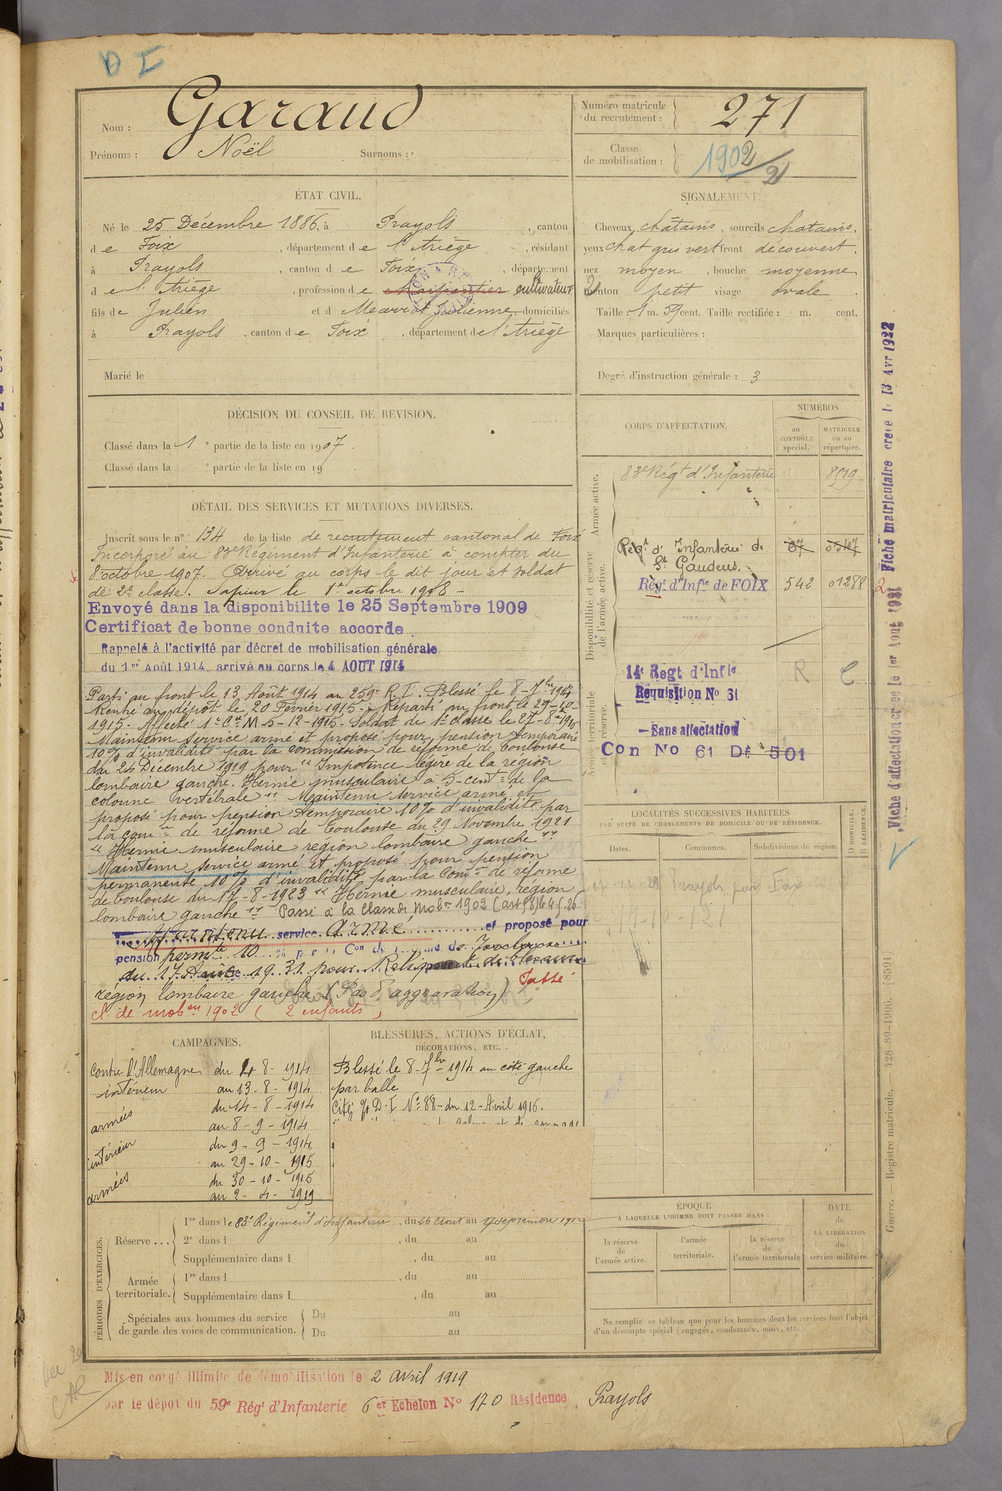 D I
Nom : Garaud
Prénoms : Noël Surnoms :
Numéro matricule du recrutement : 271
Classe de mobilisation : 1902/21
ÉTAT CIVIL.
Né le 25 Décembre 1886, à Prayols, canton
de Foix, département de l'Ariège, résidant
à Prayols, canton de Foix, département
de l'Ariège, profession de charpentier cultivateur
fils de Julien et d domiciliés
à Prayols, canton de Foix, département de l'Ariège
Marié le
SIGNALEMENT.
Cheveux châtains, sourcils chatains.
yeux chat gris vert front découvert.
nez moyen, bouche moyenne
menton petit visage ovale.
Taille : 1 m. 59 cent. Taille rectifiée : m. cent.
Marques particulières :
Degré d'instruction générale : 3
DÉCISION DU CONSEIL DE REVISION.
Classé dans la 1e partie de la liste en 1907
Classé dans la e partie de la liste en 19
DÉTAIL DES SERVICES ET MUTATIONS DIVERSES.
Inscrit sous le n° 134 de la liste de recrutement cantonal de Foix
Incorporé au 83e Régiment d'Infanterie à compter du
8 octobre 1907. Arrivé au corps le dit jour et soldat
de 2e classe. Sapeur le 1er octobre 1908 -
Envoyé dans la disponibilite le 25 Septembre 1909
Certificat de bonne conduite accorde
Rappelé à l'activité par décret de mobilisation générale
du 1er Août 1914, arrivé au corps le 4 AOUT 1914
Parti au front le 13 Août 1914 au 259e R.I. Blessé le 8-7bre 1914
Rentré au dépôt le 20 Février 1915. Reparti au front le 29-10-
1915. Affecté 1e Cie M 5-12-1915. Soldat de 1e classe le 27-8-
Maintenu service armé et proposé pour pension temporaire
10% d'invalidité par la commission de réforme de Toulouse
du 24 Décembre 1919 pour "Impotence légère de la région
lombaire gauche. Hernie musculaire à 5 cent. de la
colonne vertébrale" Maintenu service armé et
proposé pour pension temporaire 10% d'invalidité par
la Comon de réforme de Toulouse du 29 Novembre 1921
"Hernie musculaire region lombaire gauche"
Maintenu service armé et proposé pour pension
permanente 10% d'invalidité par la Comon de réforme
de Toulouse du 17-8-1923 "Hernie musculaire, région
lombaire gauche" Passé à la classe de Mobon 1902
Maintenu service armé et proposé pour
pension permte 10 % par la Con de réforme de Toulouse
du 17 1931 pour
région lombaire gauche (Pas d'aggravation) Passé
cl. de mobon 1902 (2 enfants)
CORPS D'AFFECTATION.
NUMÉROS
au CONTRÔLE spécial.
MATRICULE ou au répertoire.
Armée active.
83e Régt d'Infanterie 8529
Disponibilité et réserve de l'armée active.
Régt d'Infanterie de St Gaudens. 87
Régt d'Infie de FOIX 542 01288
Armée territoriale et réserve.
14e Regt d'Infie R C
Requisition No 61
Sans affectation
Con No 61 De 501
Fiche d'affectation créée le 1er Aout 1921 Fiche matriculaire créée le 13 Avr 1922
LOCALITÉS SUCCESSIVES HABITÉES
PAR SUITE DE CHANGEMENTS DE DOMICILE OU DE RÉSIDENCE.
Dates. Communes. Subdivisions de région. D DOMICILE. R RÉSIDENCE.
Prayols par Foix
CAMPAGNES.
Contre l'Allemagne du 4-8-1914
intérieur au 13-8-1914
armées du 14-8-1914
au 8-9-1914
intérieur du 9-9-1914
au 29-10-1915
armées du 30-10-1915
au 2-4-1919
BLESSURES, ACTIONS D'ÉCLAT,
DÉCORATIONS, ETC.
Blessé le 8-7bre 1914 au côté gauche
par balle
Cité D.I N° 88 du 12 Avril 1916.
PÉRIODES D'EXERCICES.
Réserve... 1re dans le 83e Régiment d'Infanterie, du 26 Aout au 17 septembre 191
2e dans l , du au
Supplémentaire dans l , du au
Armée territoriale. 1re dans l , du au
Supplémentaire dans l , du au
Spéciales aux hommes du service de garde des voies de communication. Du au
Du au
ÉPOQUE
À LAQUELLE L'HOMME DOIT PASSER DANS :
la réserve de l'armée active.
l'armée territoriale.
la réserve de l'armée territoriale
DATE de LA LIBÉRATION du service militaire.
Ne remplir ce tableau que pour les hommes dont les services font l'objet
d'un décompte spécial (engagés, condamnés, omis, etc.
Guerre. — Registre matricule. — 428-89-1906. [8591]
Mis en congé illimité de démobilisation le 2 avril 1919
par le dépôt du 59e Régt d'Infanterie 6er Echelon No 170 Résidence, Prayols